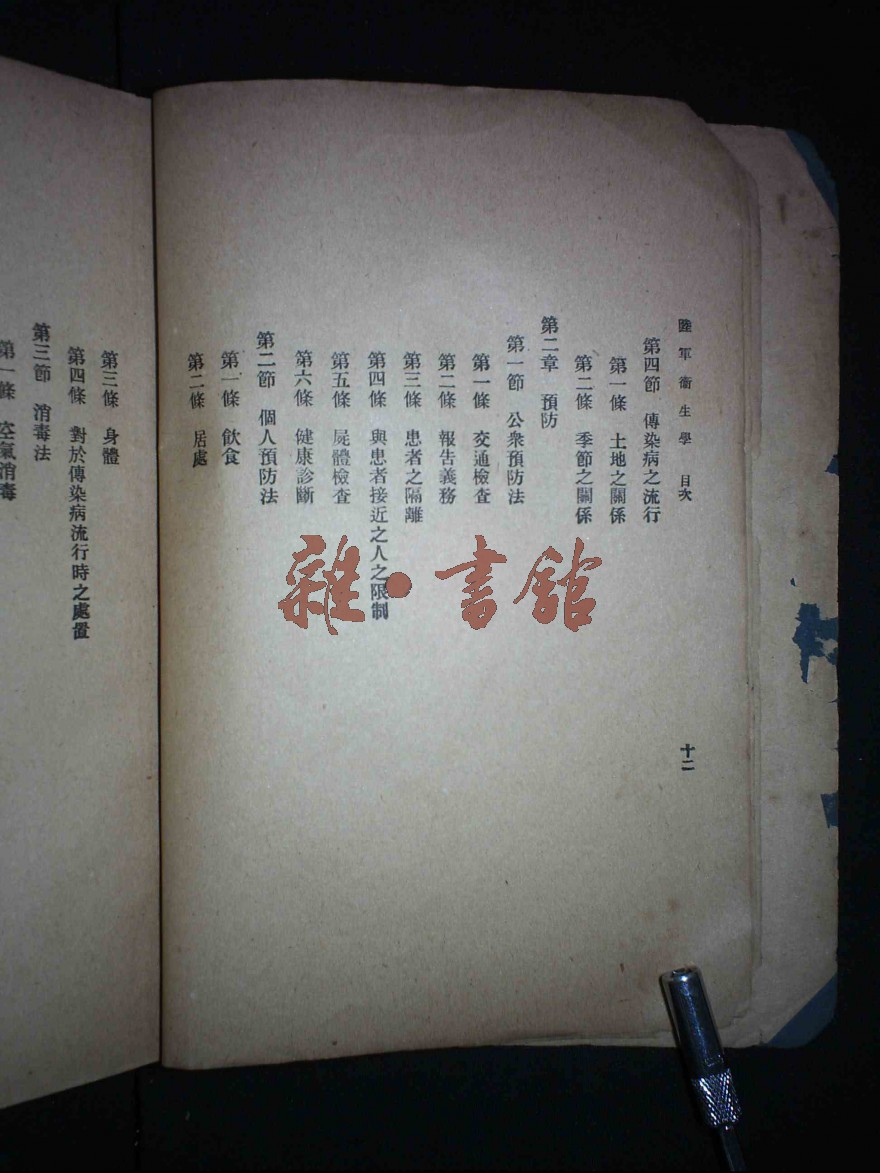 陸軍衞生學 目次
第四節 傳染病之流行
第一條 土地之關係
第二條 季節之關係
第二章 預防
第一節 公衆預防法
第一條 交通檢查
第二條 報告義務
第三條 患者之隔離
第四條 與患者接近之人之限制
第五條 屍體檢查
第六條 健康診斷
第二節 個人預防法
第一條 飲食
第二條 居處
十二
第三條 身體
第四條 對於傳染病流行時之處置
第三節 消毒法
第一條 空氣消毒
雜·書館